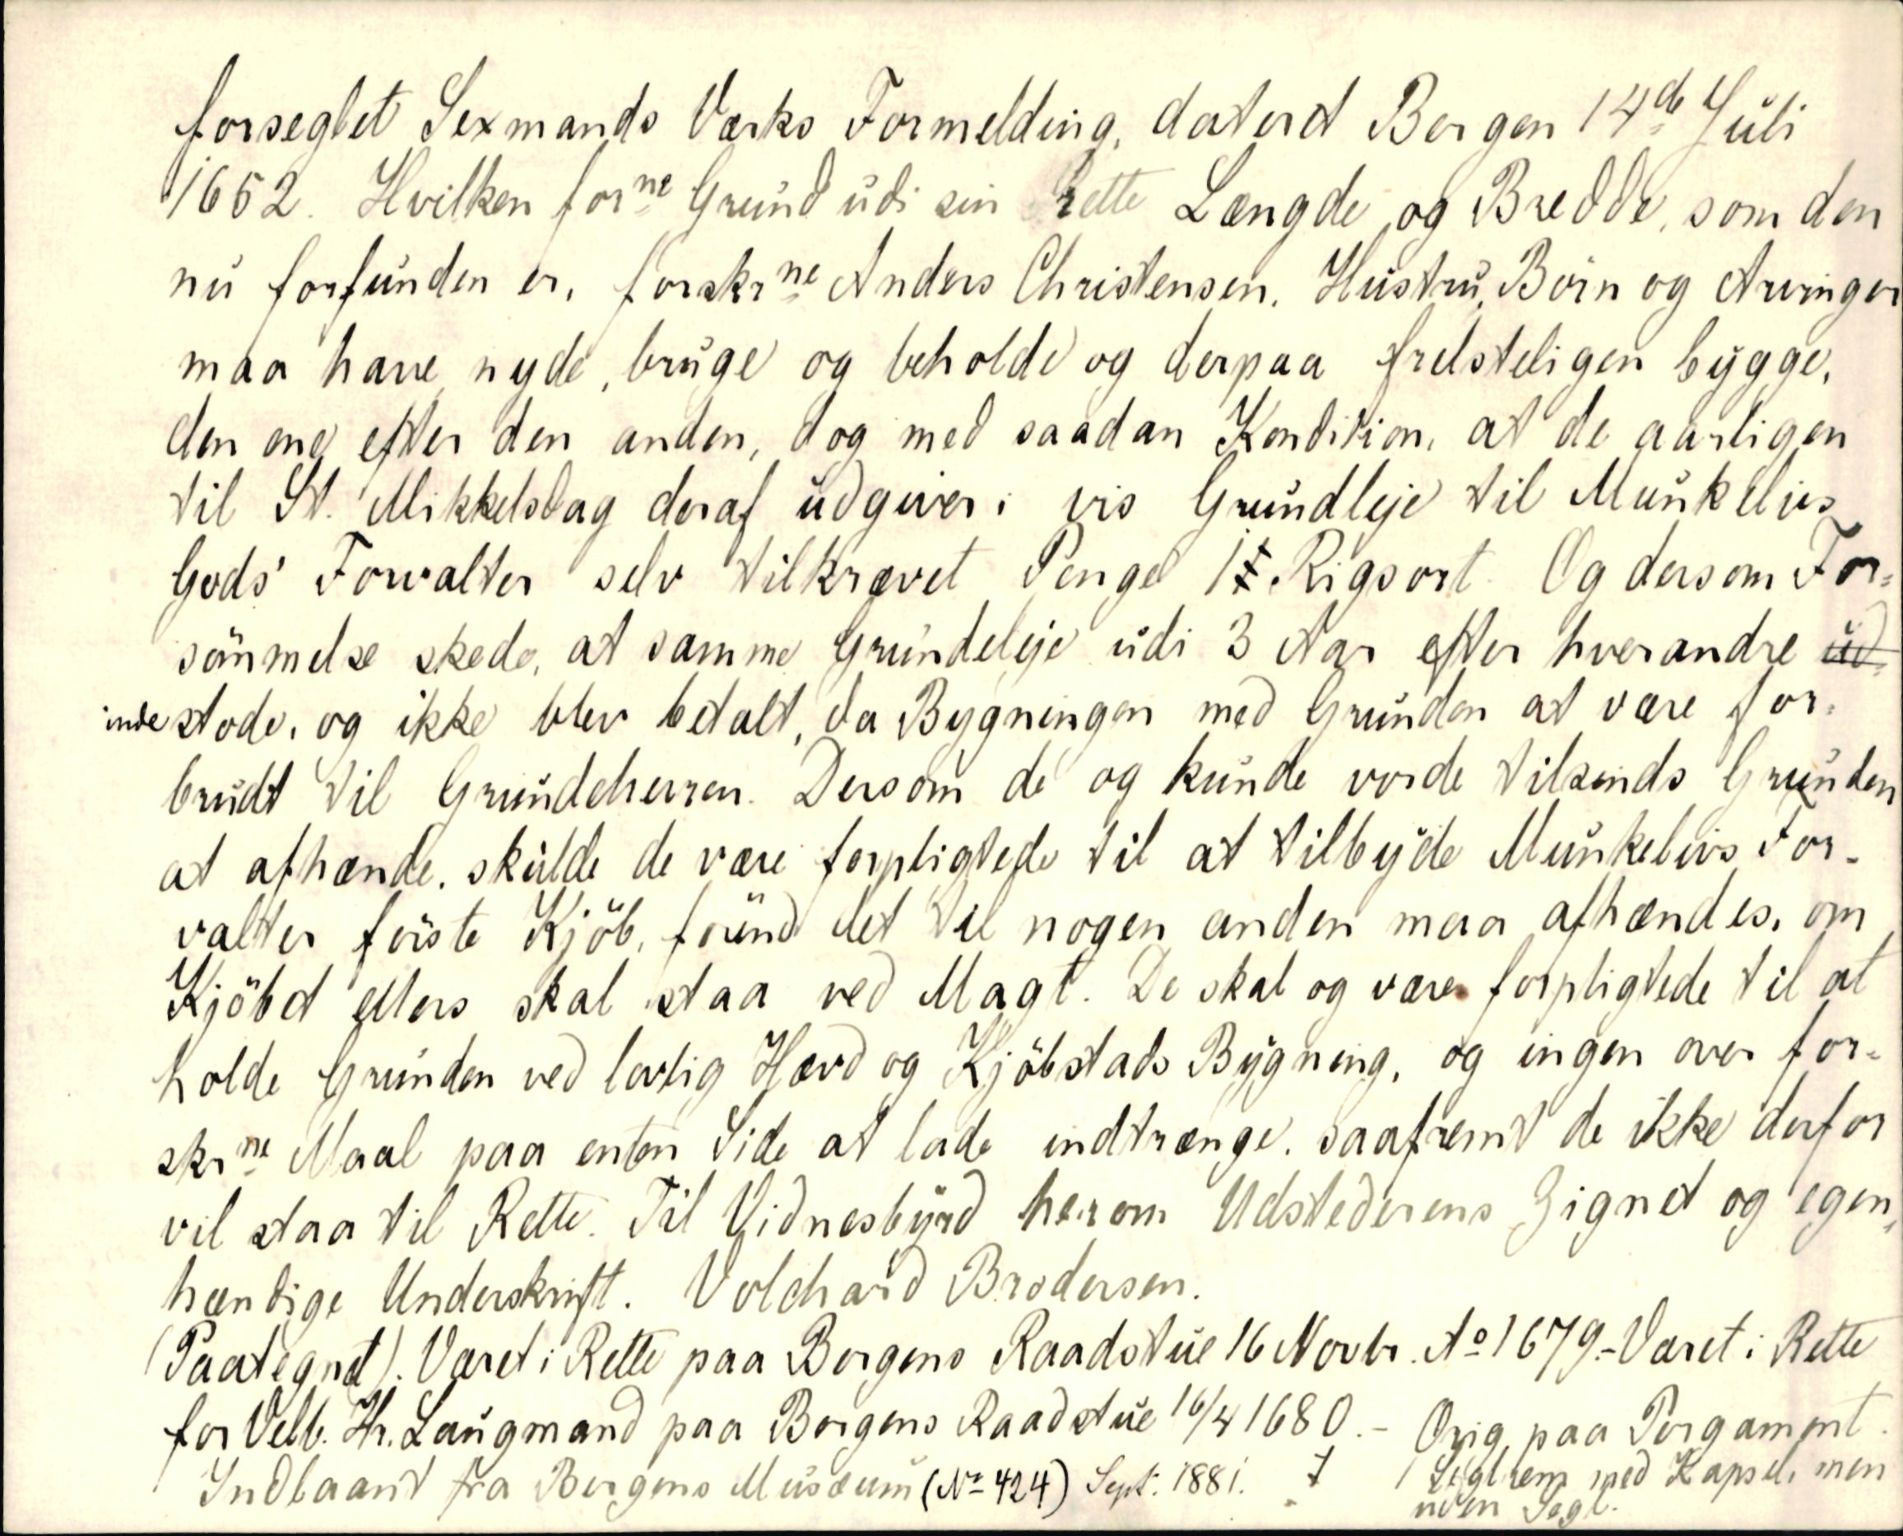 forseglet Sexmands Værks Formelding, dateret Bergen 14de Juli
1652. Hvilken forne Grund udi sin rette Længde og Bredde, som den
nu forfunden er, forskrne Anders Christensen, Hustru, Börn og Arvinger
maa have, nyde, bruge og beholde og derpaa frelsteligen bygge,
den ene efter den anden, dog med saadan Kondition, at de aarligen
til St. Mikkelsdag deraf udgiver i vis Grundleje til Munkelivs
Gods' Forvalter selv tilkrævet Penge 1 Rigsort. Og dersom For-
sömmelse skede, at samme Grundeleje udi 3 Aar efter hverandre ud-
inde stode, og ikke blev betalt, da Bygningen med Grunden at være for-
brudt til Grundeherren. Dersom de og kunde vorde tilsinds Grunden
at afhænde, skulde de være forpligtede til at tilbyde Munkelivs For-
valter förste Kjöb, förend det til nogen anden maa afhændes, om
Kjöbet ellers skal staa ved Magt. De skal og være forpligtede til at
holde Grunden ved lovlig Hævd og Kjöbstads Bygning, og ingen over for-
skrne Maal paa enten Side at lade indtrænge, saafremt de ikke derfor
vil staa til Rette. Til Vidnesbyrd herom Udstederens Zignet og egen-
hændige Underskrift. Volchard Brodersen.
(Paategnet). Været i Rette paa Bergens Raadstue 16 Novbr. Ao 1679.- Været i Rette
for Velb. Hr. Laugmand paa Bergens Raadstue 16/4 1680.- Orig. paa Pergament.
Indlaant fra Bergens Musæum (No 424) Sept. 1881. Seglrem med Kapsel, men
uden Segl.